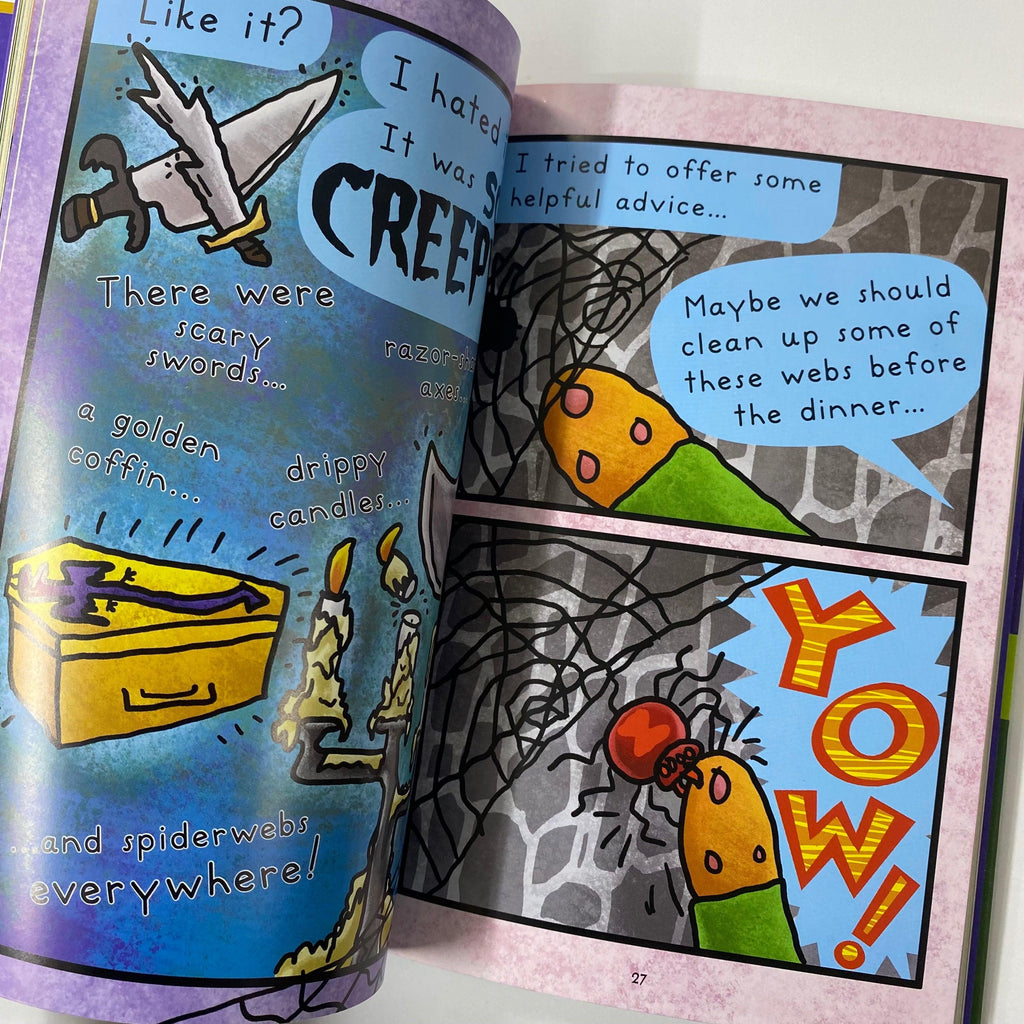 Like it?
I hated
It was
CREEP
There were
scary
swords...
axes...
a golden
coffin...
drippy
candles...
...and spiderwebs
everywhere!
I tried to offer some
helpful advice...
Maybe we should
clean up some of
these webs before
the dinner...
YOW!
27